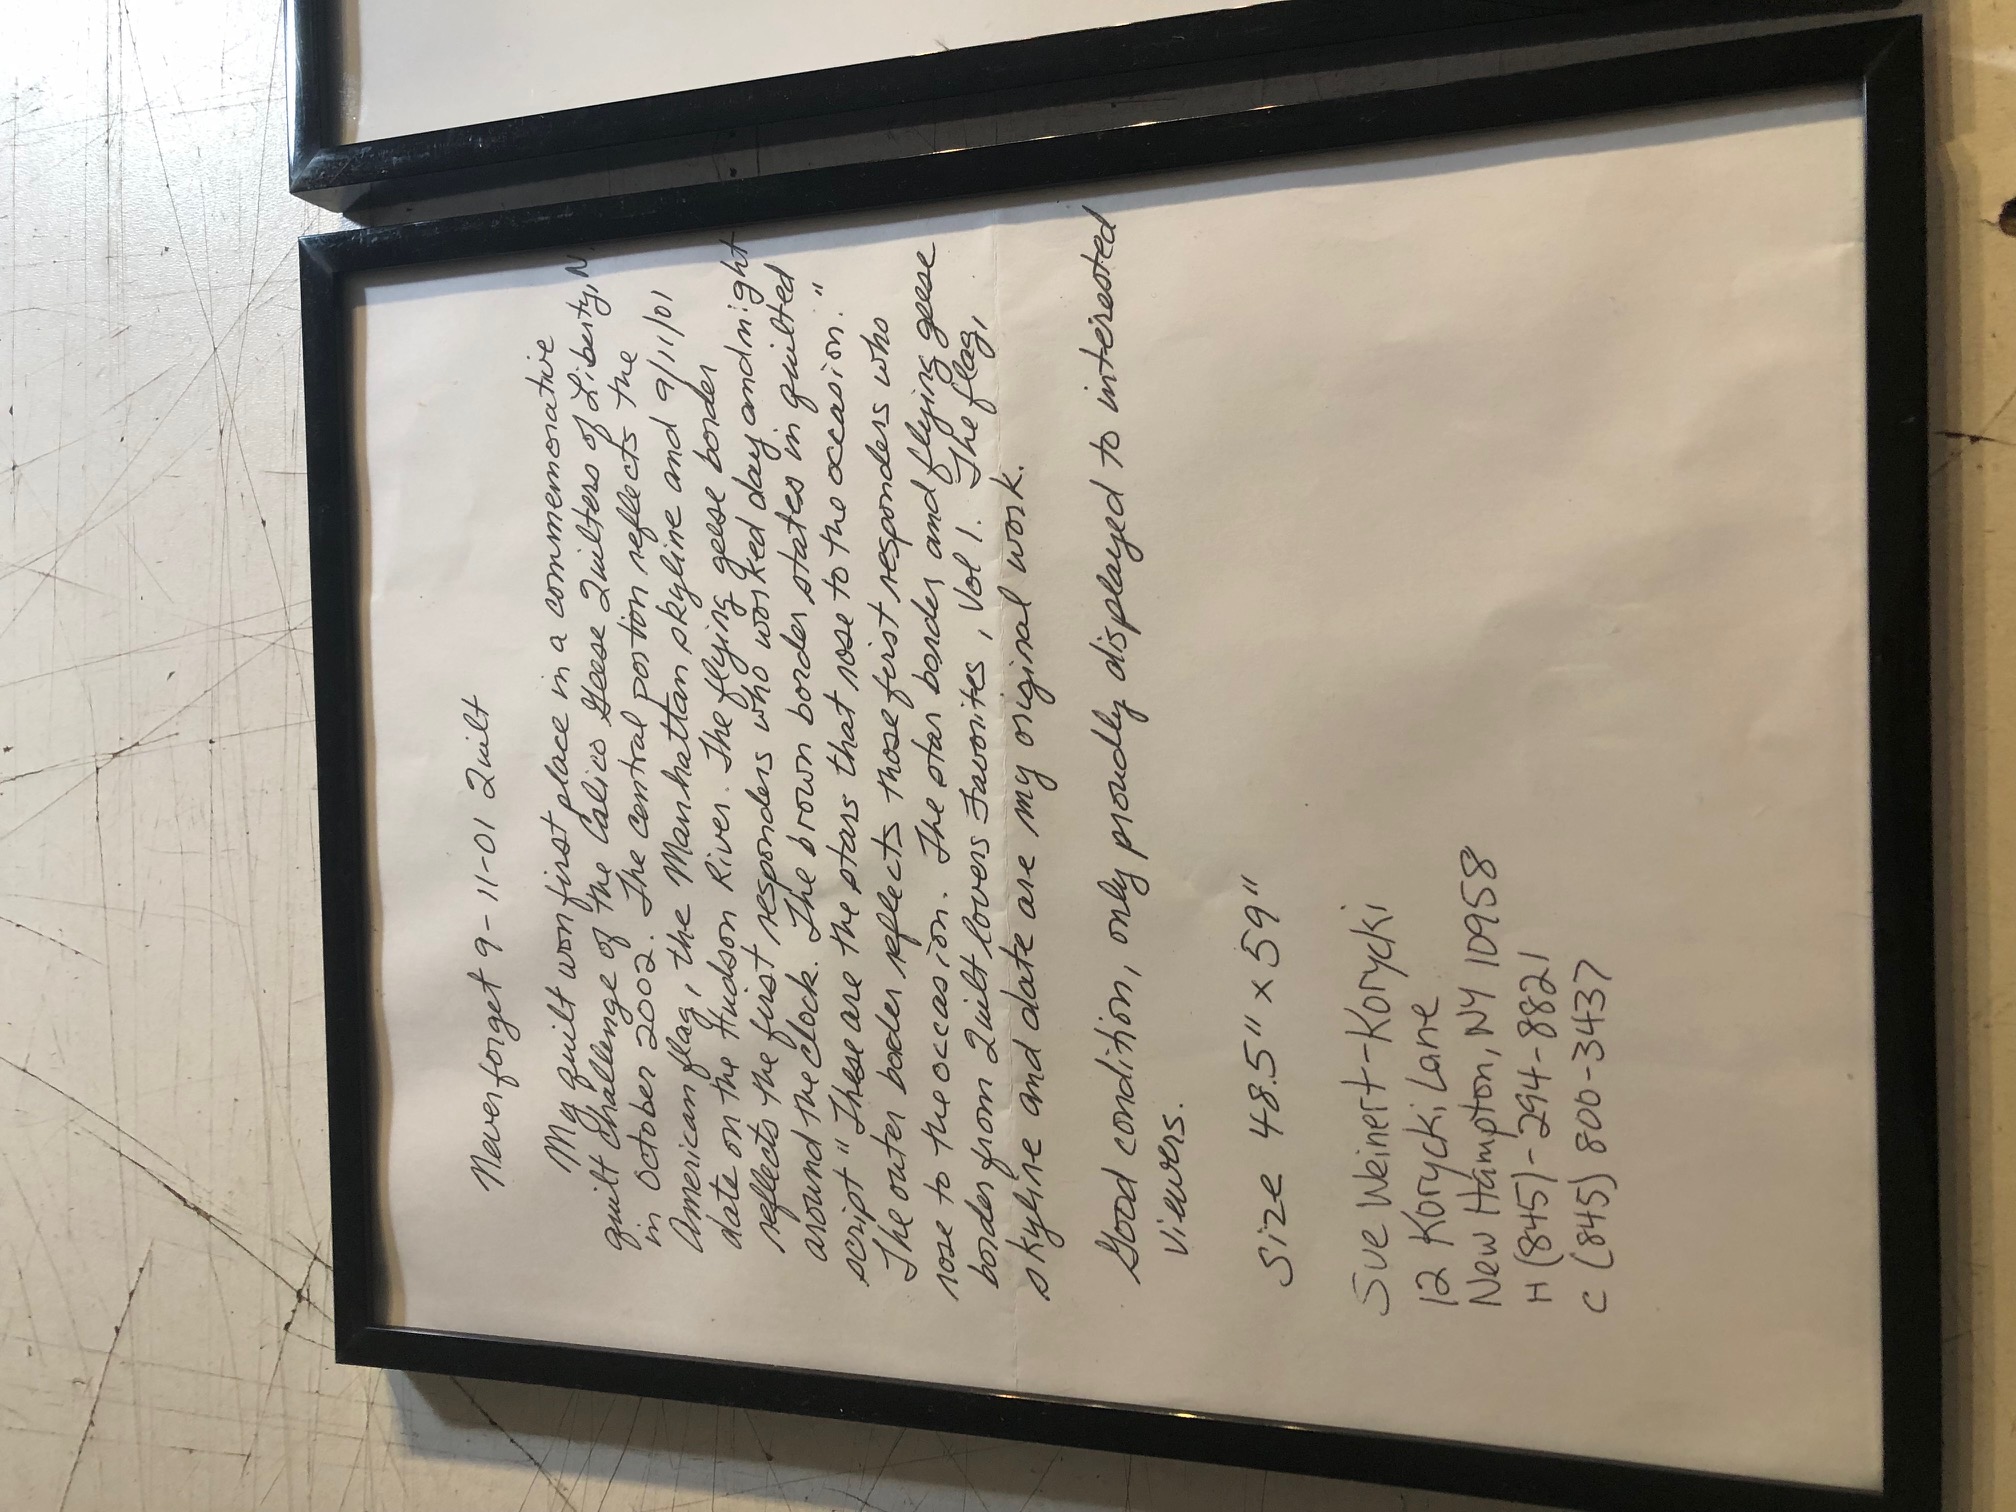 Never forget 9-11-01 Quilt
My quilt won first place in a commemorative
quilt challenge of the Calico Geese Quilters of Liberty, N
in October 2002. The central portion reflects the
American flag, the Manhattan skyline and 9/11/01
date on the Hudson River. The flying geese border
reflects the first responders who worked day and night
around the clock. The brown border states in quilted
script "These are the stars that rose to the occasion."
The outer border reflects those first responders who
rose to the occasion. The star border and flying geese
border from Quilt lovers Favorites, Vol 1. The flag,
skyline and date are my original work.
Good condition, only proudly displayed to interested
viewers.
Size 48.5" x 59"
Sue Weinert-Korycki
12 Korycki Lane
New Hampton, NY 10958
H (845)-294-8821
C (845) 800-3437